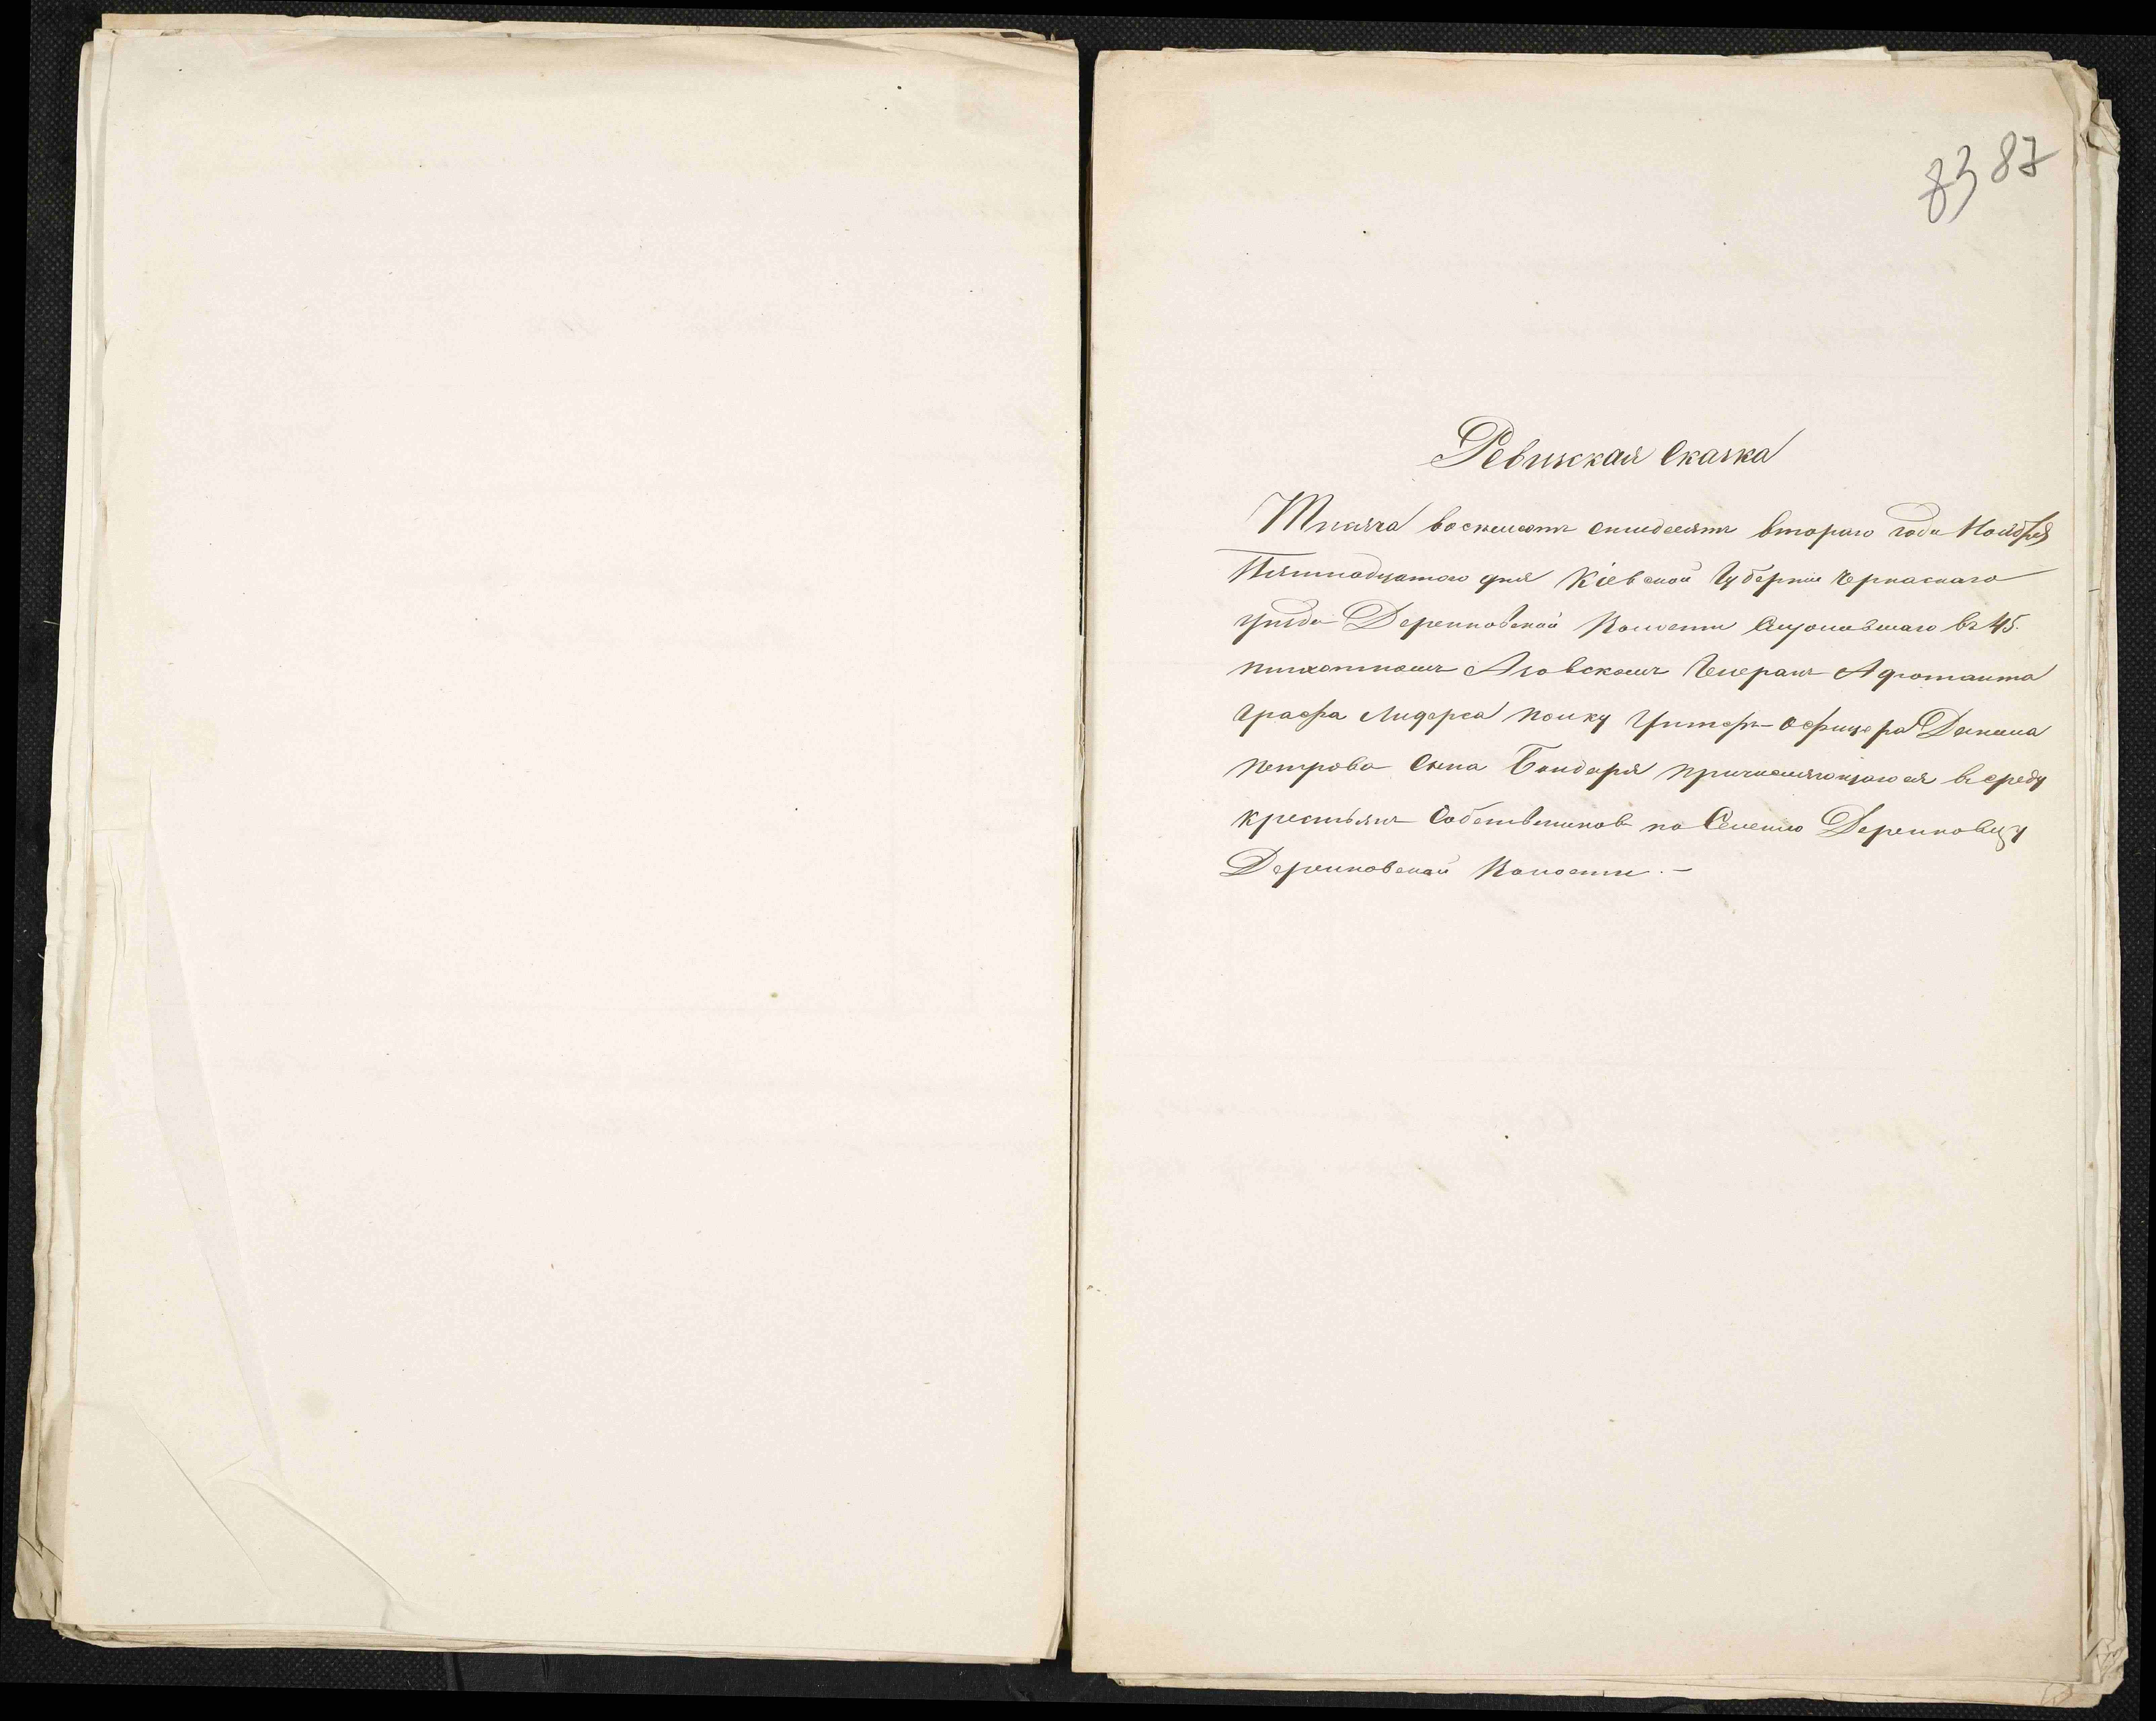 83 87
Ревизская Сказка
Тысяча восемьсотъ семидесятъ втораго года Ноября
Пятнадцатаго дня Кіевской Губерніи Черкаскаго
уѣзда Деренковской Волости Служившаго въ 45.
пѣхотномъ Азовскомъ Генералъ Адютанта
Графа Лидерса полку Унтеръ-Офицера Демьяна
Петрова Сына Бондаря причисляющагося въ среду
крестьянъ Собственниковъ по Селенію Деренковцу
Деренковской Волости. —